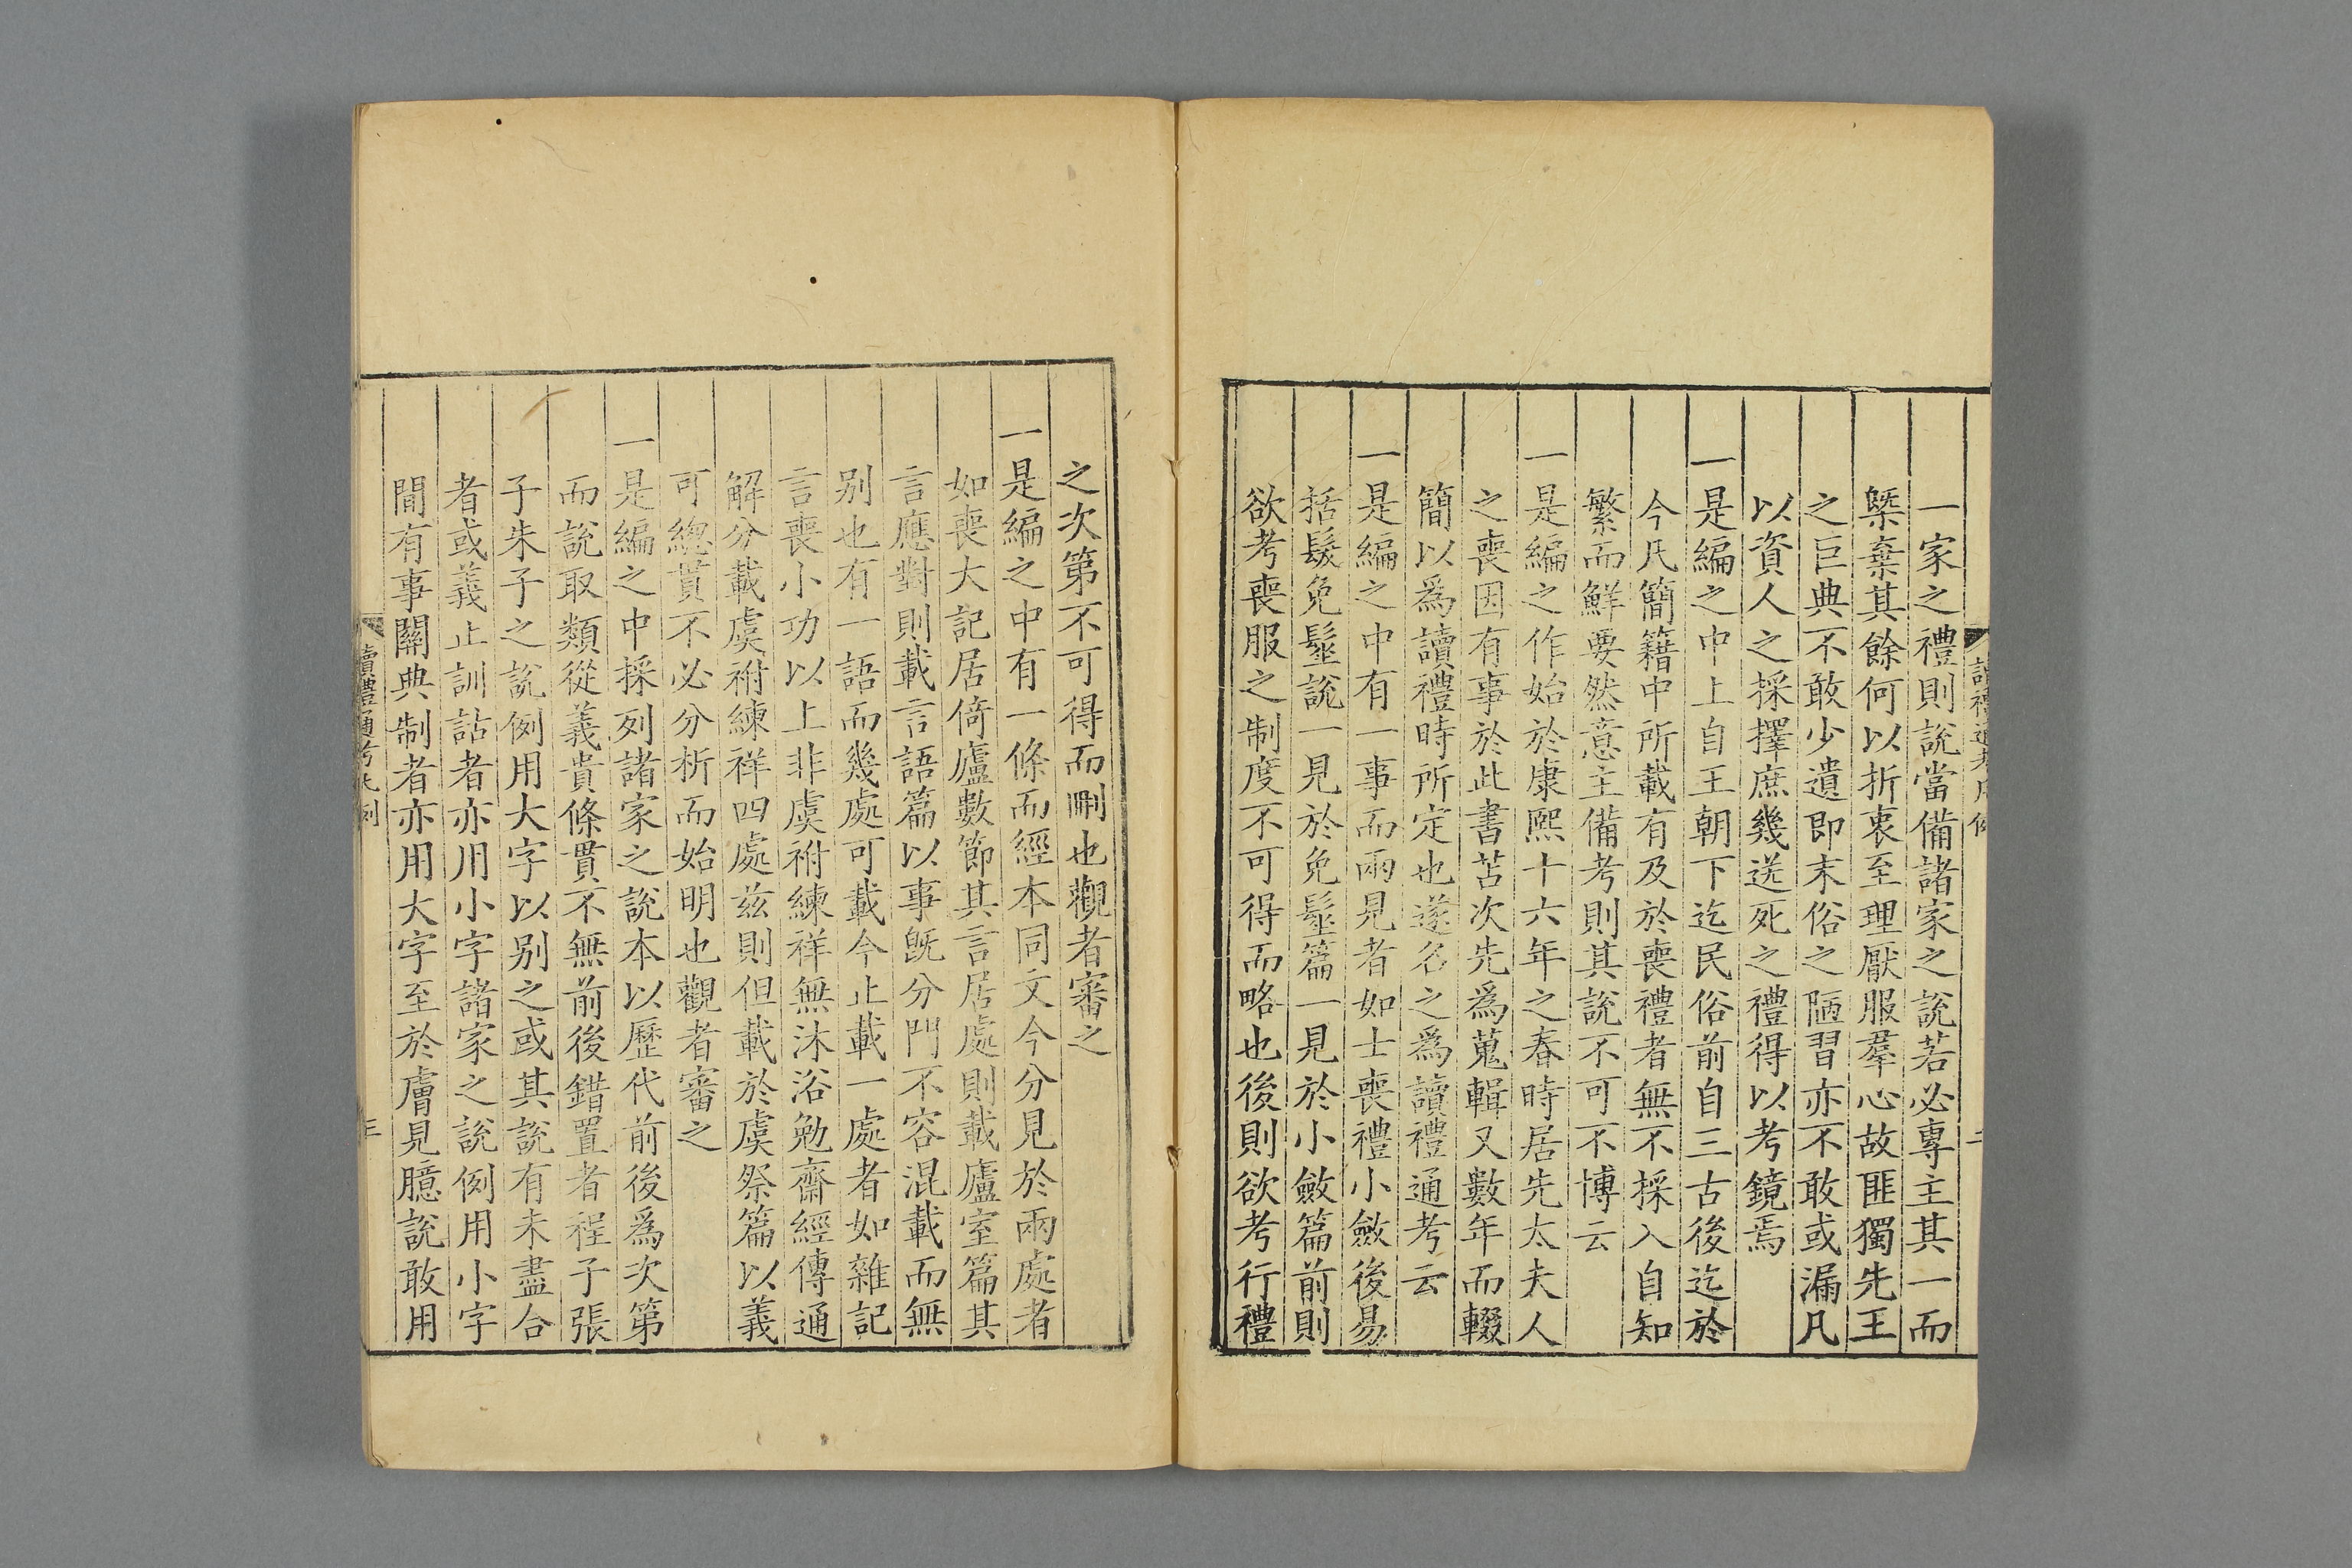 一家之禮則說當備諸家之說若必專主其一而
槩棄其餘何以折衷至理厭服羣心故匪獨先王
之巨典不敢少遺即末俗之陋習亦不敢或漏凡
以資人之採擇庶幾送死之禮得以考鏡焉
一是編之中上自王朝下迄民俗前自三古後迄於
今凡簡籍中所載有及於喪禮者無不採入自知
繁而鮮要然意主備考則其說不可不博云
一是編之作始於康熙十六年之春時居先太夫人
之喪因有事於此書苫次先為蒐輯又數年而輟
簡以爲讀禮時所定也遂名之爲讀禮通考云
一是編之中有一事而兩見者如士喪禮小斂後易
括髮免髽說一見於免髽篇一見於小斂篇前則
欲考喪服之制度不可得而略也後則欲考行禮
之次第不可得而刪也觀者審之
一是編之中有一條而經本同文今分見於兩處者
如喪大記居倚廬數節其言居處則載廬室篇其
言應對則載言語篇以事旣分門不容混載而無
别也有一語而幾處可載今止載一處者如雜記
言喪小功以上非虞祔練祥無沐浴勉齋經傳通
解分載虞祔練祥四處兹則但載於虞祭篇以義
可總貫不必分析而始明也觀者審之
一是編之中採列諸家之說本以歷代前後爲次第
而說取類從義貴條貫不無前後錯置者程子張
子朱子之說例用大字以别之或其說有未盡合
者或義止訓詁者亦用小字諸家之說例用小字
間有事關典制者亦用大字至於膚見臆說敢用
讀禮通考凡例